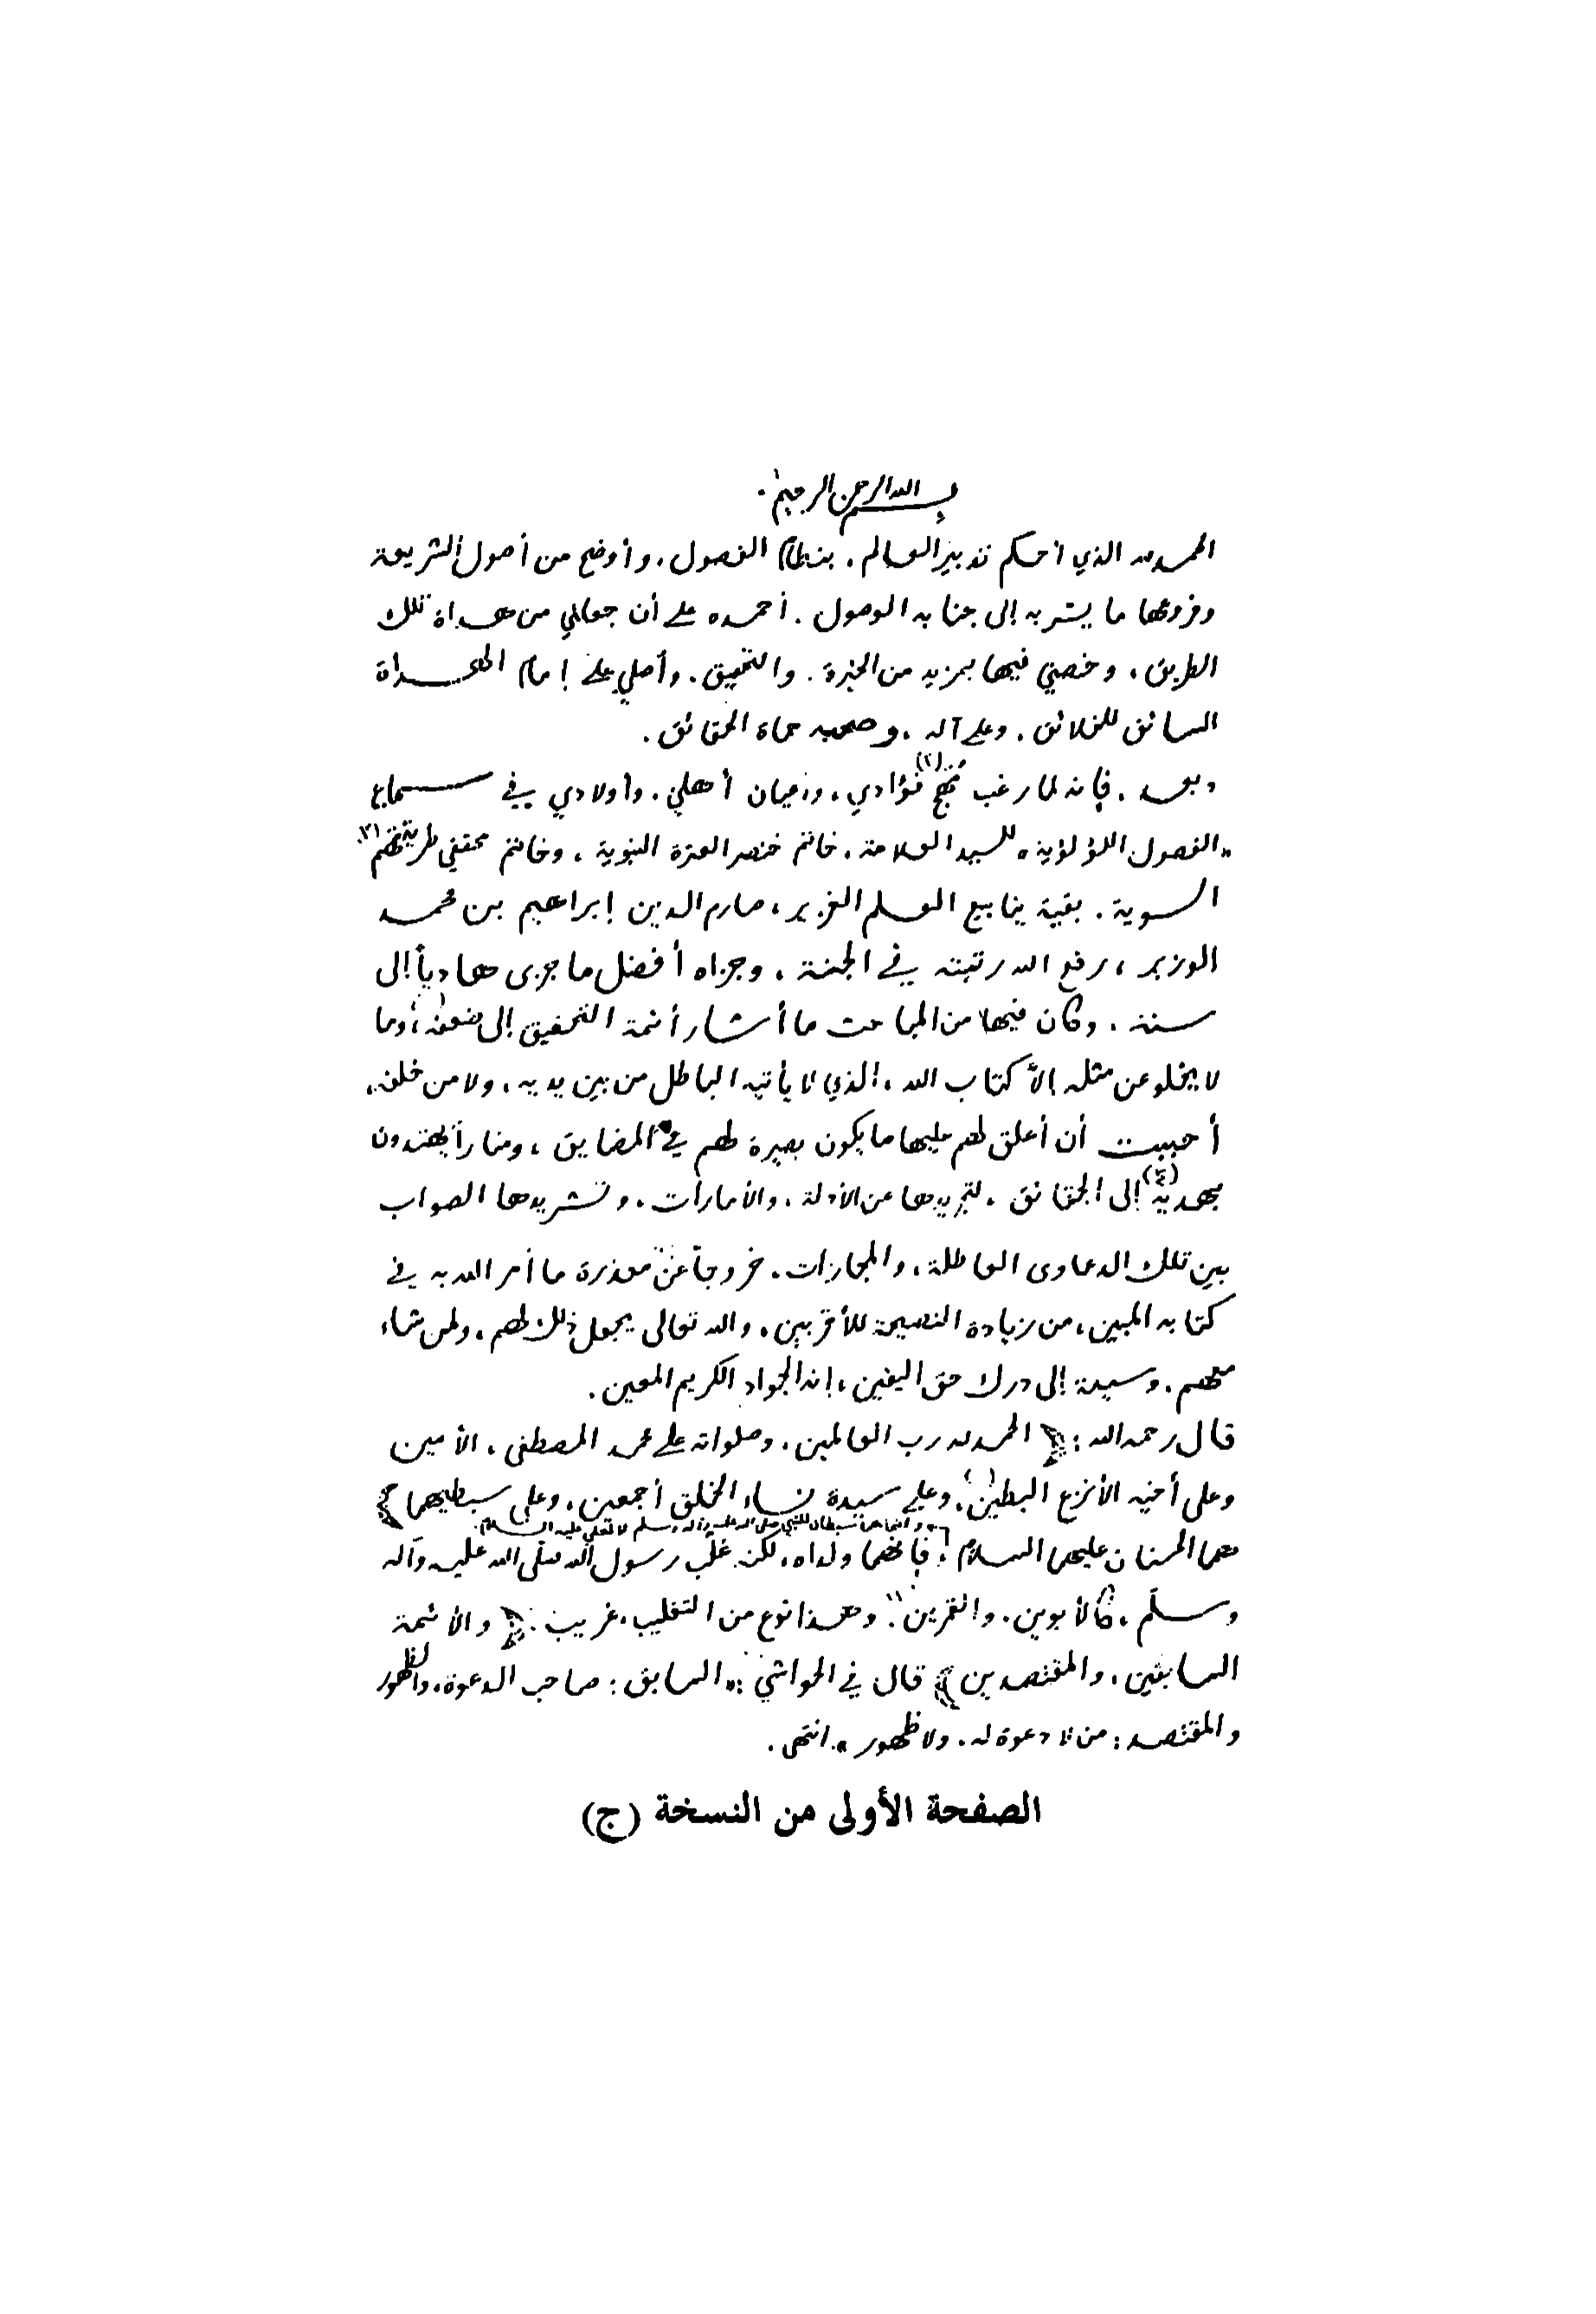 بسم الله الرحمن الرحيم .
الحمد لله الذي أحكم تدبير العالم ، بنظام الفصول ، وأوضح من أصول الشريعة
وفروعها ما يسر به إلى جنابه الوصول . أحمده على أن جعلني من هداة تلك
الطريق ، وخصني فيها بمزيد من الخبرة . والتحقيق . وأصلي على إمام الهداة
السائق للخلائق . وعلى آله ، وصحبه حماة الحقائق .
وبعد . فإنه لما رغب مهج (٢) فؤادي ، وأعيان أهلي . وأولادي في سماع
" الفصول اللؤلؤية " للسيد العلامة . خاتم خنصر العترة النبوية ، وخاتم محققي طريقتهم (٣)
السوية . بقية ينابيع العلم الغزير ، صارم الدين إبراهيم بن محمد
الوزير ، رفع الله رتبته في الجنة ، وجزاه أفضل ما جزى هادياً إلى
سنة . وكان فيها من المباحث ما أشار أئمة التحقيق إلى ضعفه ، وما
لا يخلو عن مثله إلا كتاب الله ، الذي لا يأتيه الباطل من بين يديه ، ولا من خلفه ،
أحببت أن أعلق لهم عليها ما يكون بصيرة لهم في المضايق ، ومناراً يهتدون
بهديه (٤) إلى الحقائق ، لتجريدها عن الأدلة ، والأمارات ، وتشريدها الصواب
بين تلك الدعاوى العاطلة ، والمجازات . خروجاً عن معذرة ما أمر الله به في
كتابه المبين ، من زيادة النصيحة للأقربين . والله تعالى يجعل ذلك لهم ، ولمن شاء
منهم . وسيلة إلى درك حق اليقين ، إنه الجواد الكريم المعين .
قال رحمه الله : ﴿ الحمد لله رب العالمين . وصلواته على محمد المصطفى ، الأمين
وعلى أخيه الأنزع البطين ، وعلى سيدة نساء الخلق أجمعين ، وعلى سبطيهما ﴾
" وإنما هما سبطان للنبي صلى الله عليه وآله وسلم لا لعلي عليه السلام
هما الحسنان عليهما السلام ، فإنهما ولداه ، لكن غلّب رسول الله صلّى الله عليه وآله
وسلّم ، كالأبوين . والقمرين " . وهذا نوع من التغليب ، غريب . ﴿ والأئمة
السابقين ، والمقتصدين ﴾ قال في الحواشي : " السابق : صاحب الدعوة ، والظهور
والمقتصد : من لا دعوة له . ولا ظهور " . انتهى .
الصفحة الأولى من النسخة (ج)